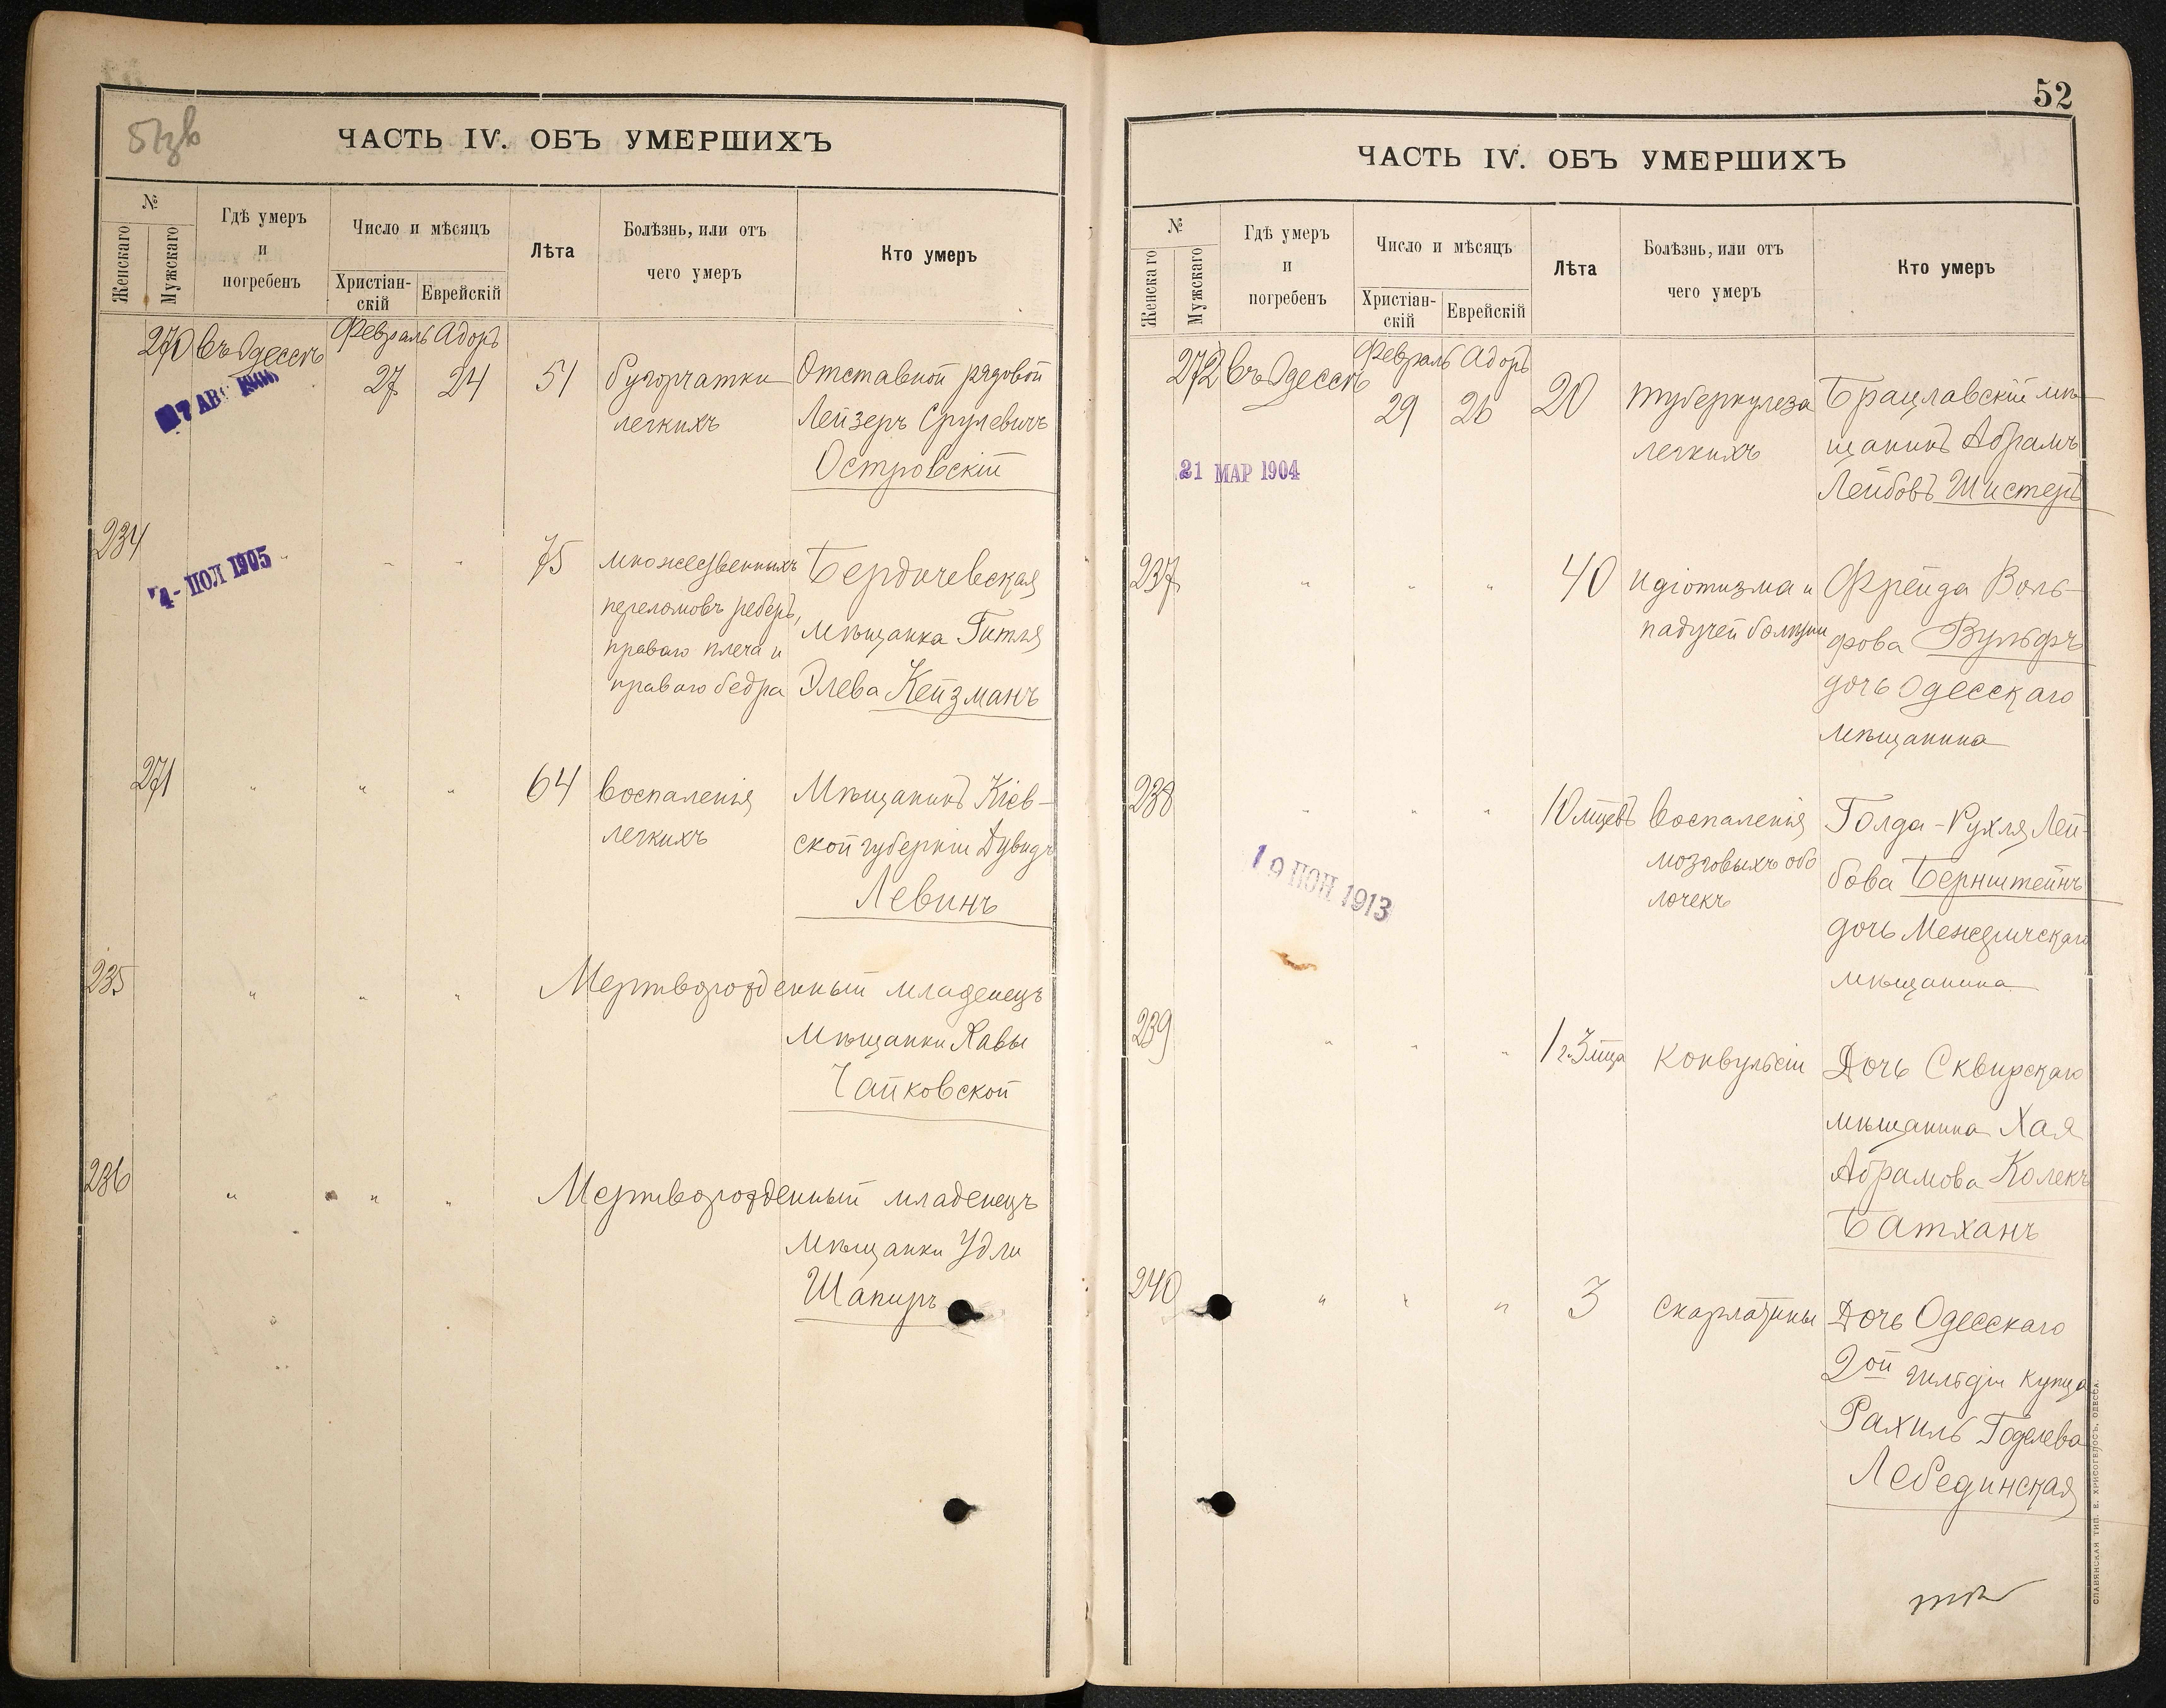 51зв
ЧАСТЬ IV. ОБЪ УМЕРШИХЪ
№
Женскаго
Мужскаго
Гдѣ умеръ
и
погребенъ
Число и мѣсяцъ
Христіан-
скій
Еврейскій
Лѣта
Болѣзнь, или отъ
чего умеръ
Кто умеръ
270 въ Одессѣ Февраль Адоръ
27 24 51 бугорчатки Отставной рядовой
легкихъ Лейзеръ Срулевичъ
Островскій
234
4- ІЮЛ 1905
" " 75 множественныхъ Бердичевская
переломовъ реберъ, мѣщанка Гитля
праваго плеча и
праваго бедра Элева Кейзманъ
271 " " " 64 воспаленія Мѣщанинъ Кіев-
легкихъ ской губерніи Дувидъ
Левинъ
235 " " " Мертворожденный младенецъ
Мѣщанки Хавы
Чайковской
236 " " " Мертворожденный младенецъ
Мѣщанки Удли
Шапиръ
52
ЧАСТЬ IV. ОБЪ УМЕРШИХЪ
№
Женскаго
Мужскаго
Гдѣ умеръ
и
погребенъ
Число и мѣсяцъ
Христіан-
скій
Еврейскій
Лѣта
Болѣзнь, или отъ
чего умеръ
Кто умеръ
272 въ Одессѣ Февраль Адоръ
29 26 20 туберкулеза Брацлавскій мѣ-
легкихъ щанинъ Абрамъ
21 МАР 1904
Лейбовъ Шистеръ
237 " " " 40 идіотизма и Фрейда Воль-
падучей болѣзни фова Вульфъ
дочь Одесскаго
мѣщанина
238 " " " 10 мцевъ воспаленія Голда-Рухля Лей-
мозговыхъ обо бова Бернштейнъ
лочекъ
19 ІЮН 1913
дочь Межеричскаго
мѣщанина
239 " " " 1 г. 3 мца конвульсіи Дочь Сквирскаго
мѣщанина Хая
Абрамова Колекъ
Батханъ
240 " " " 3 скарлатины Дочь Одесскаго
2ой гильдіи купца
Рахиль Годелева
Лебединская
СЛАВЯНСКАЯ ТИП. Е. ХРИСОГЕЛОСЪ, ОДЕССА.